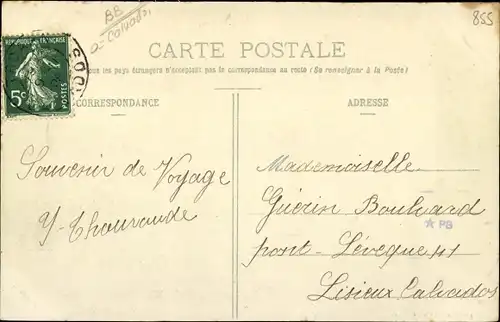 BB
Calvados
855
CARTE POSTALE
RÉPUBLIQUE FRANÇAISE
Tous les pays étrangers n'acceptent pas la correspondance au recto (Se renseigner à la Poste)
5c POSTES
CORRESPONDANCE
ADRESSE
Souvenir de Voyage
Mademoiselle
Guérin Boulvard
PB
pont-Lévêque 41
Lisieux Calvados